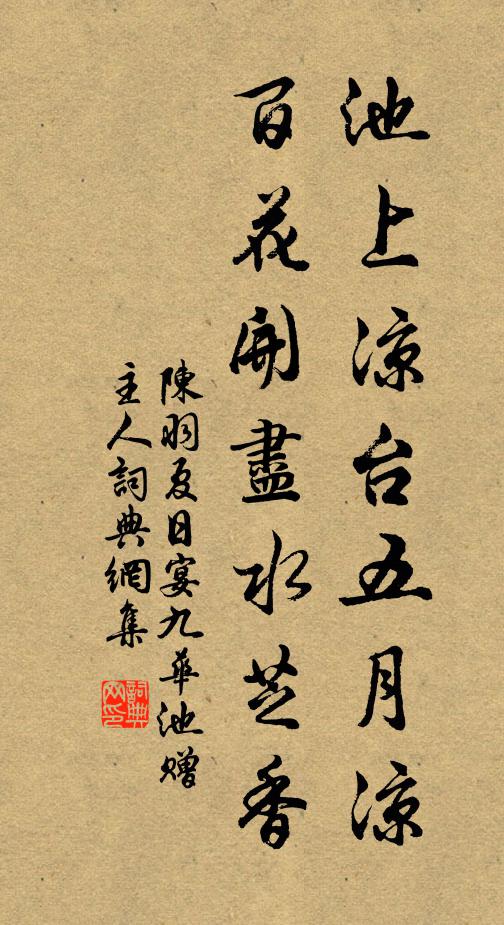 池上凉台五月凉
百花開盡水芝香
陳羽夏日宴九華池赠
主人詞典網集
詞典
网印